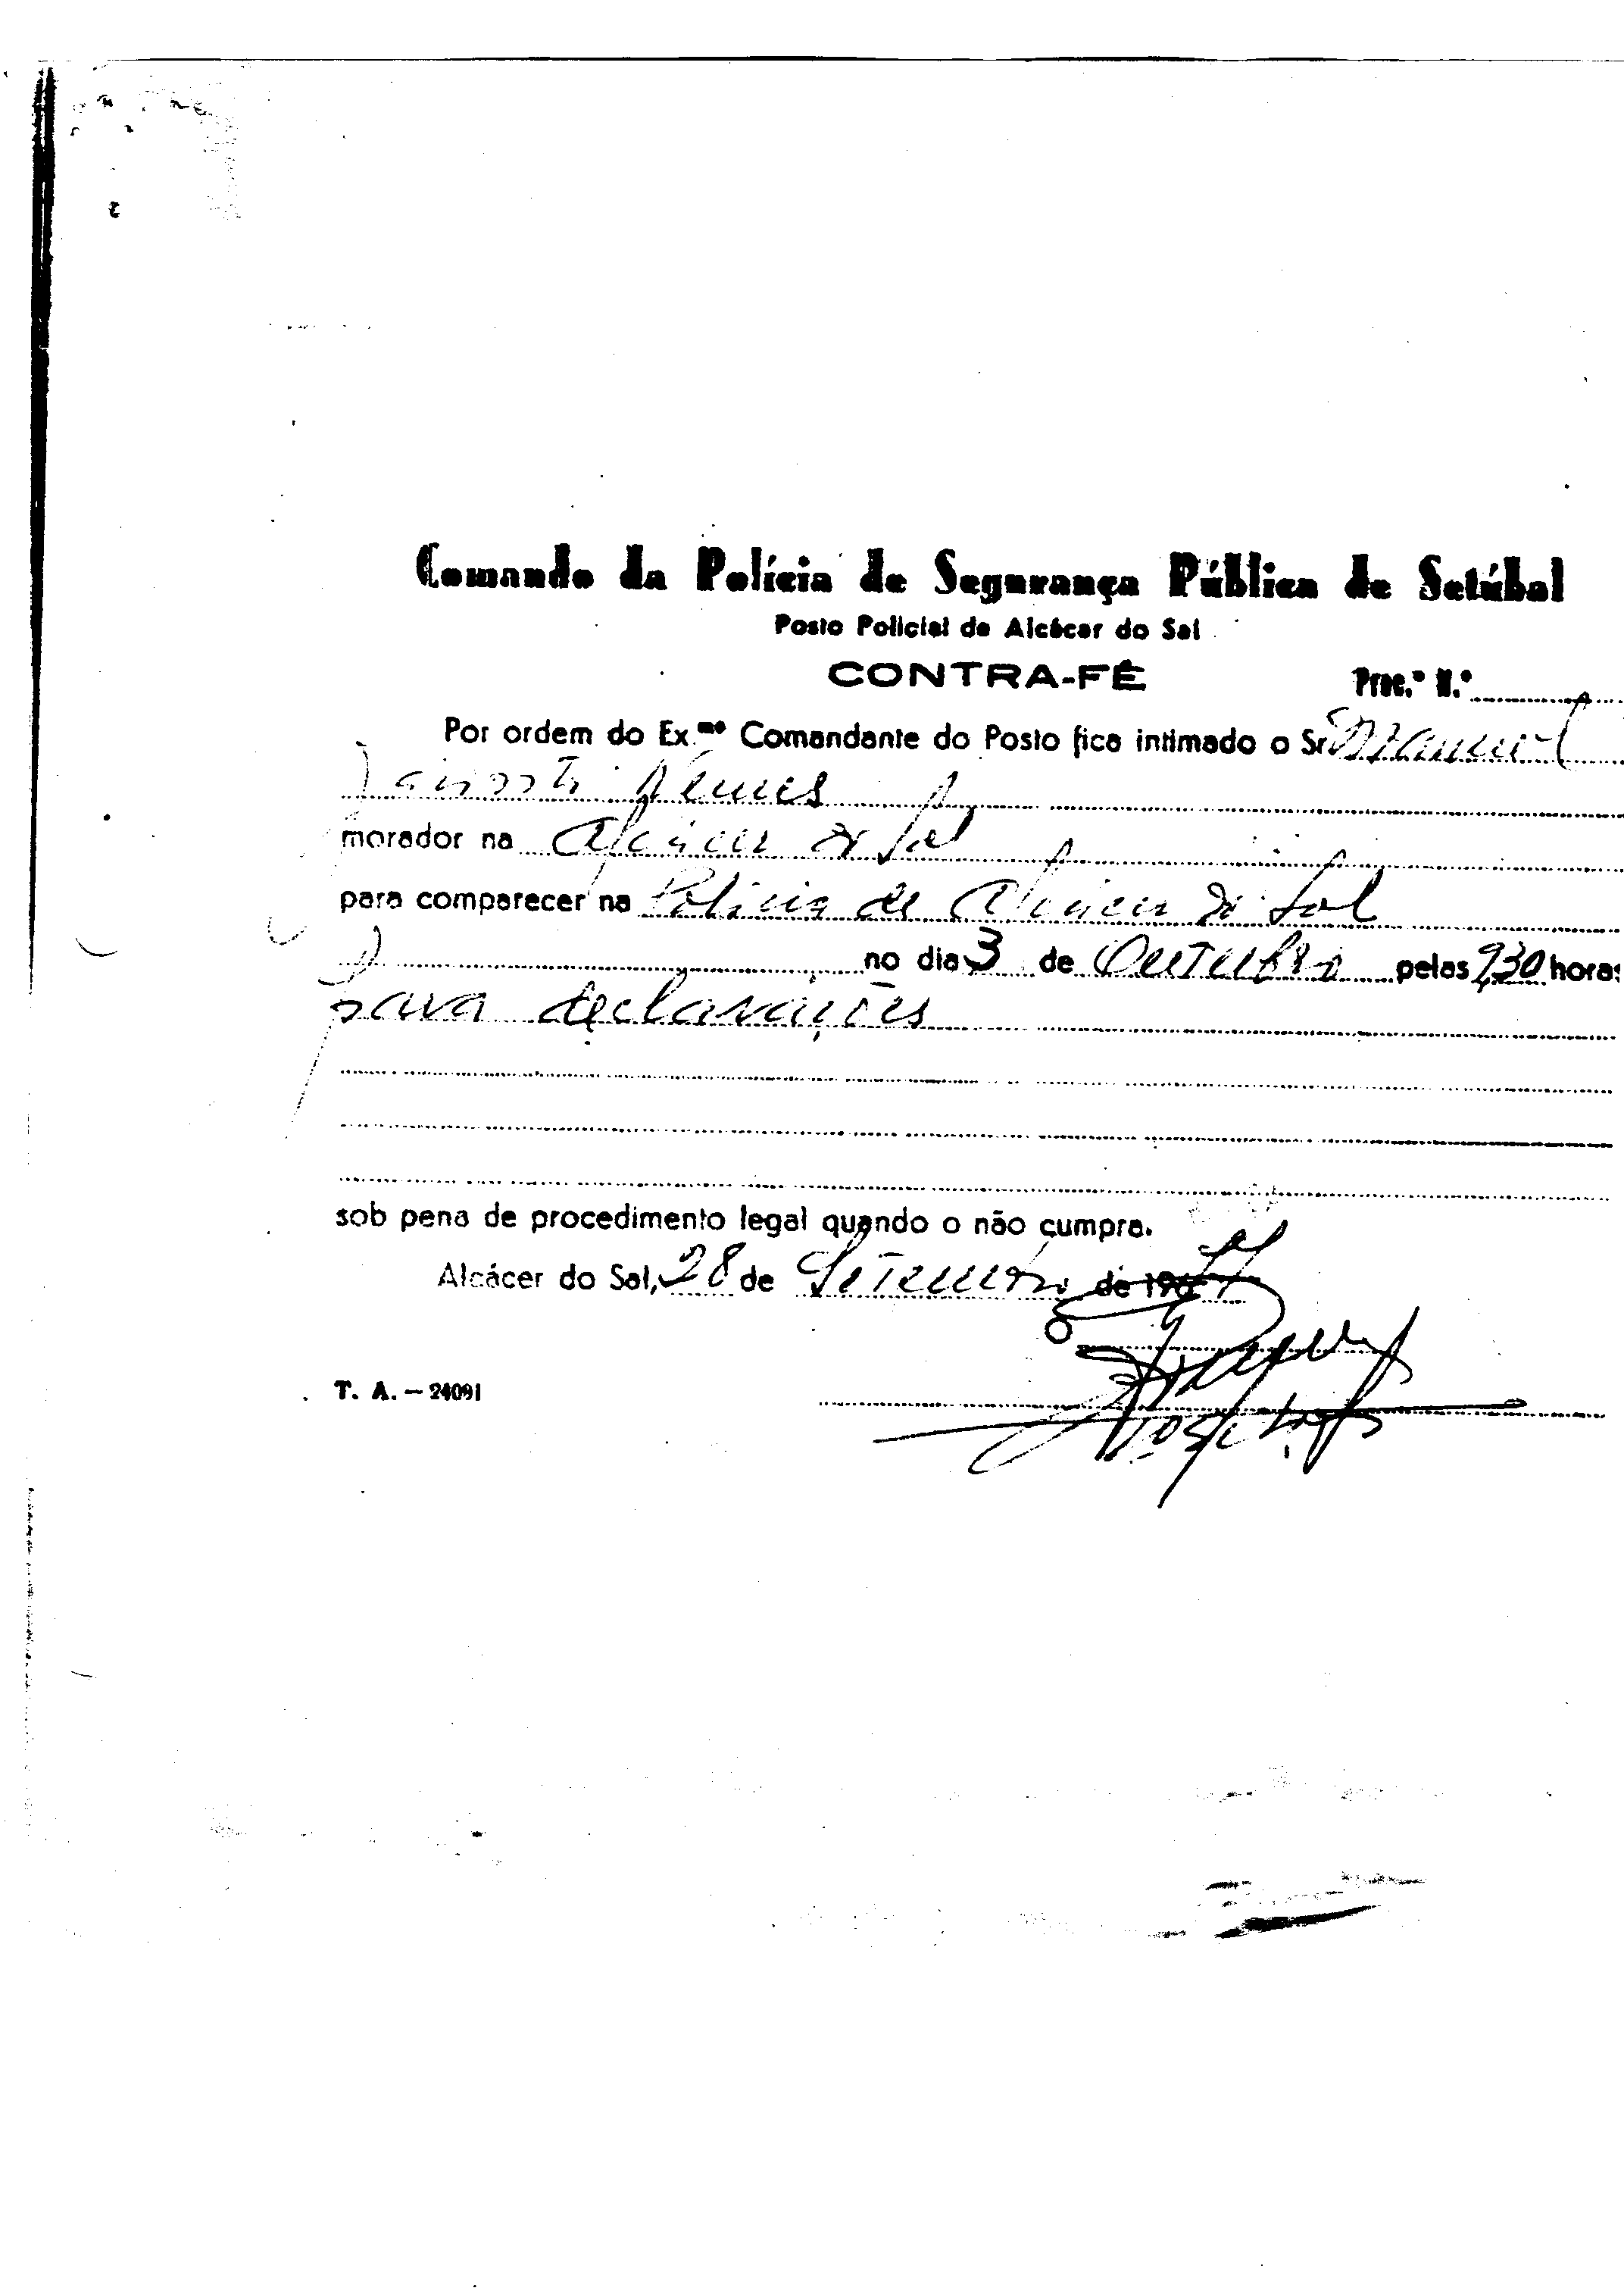 Comando da Polícia de Segurança Pública de Setúbal
Posto Policial de Alcácer do Sal
CONTRA-FÉ
Proc.º N.º
Por ordem do Ex.mo Comandante do Posto fica intimado o Sr. Manuel
morador na Alcácer do Sal
para comparecer na Polícia de Alcácer do Sal
no dia 3 de Outubro pelas 9,30 horas
para declarações
sob pena de procedimento legal quando o não cumpra.
Alcácer do Sal, 28 de Setembro de 19
O
T. A. — 24091